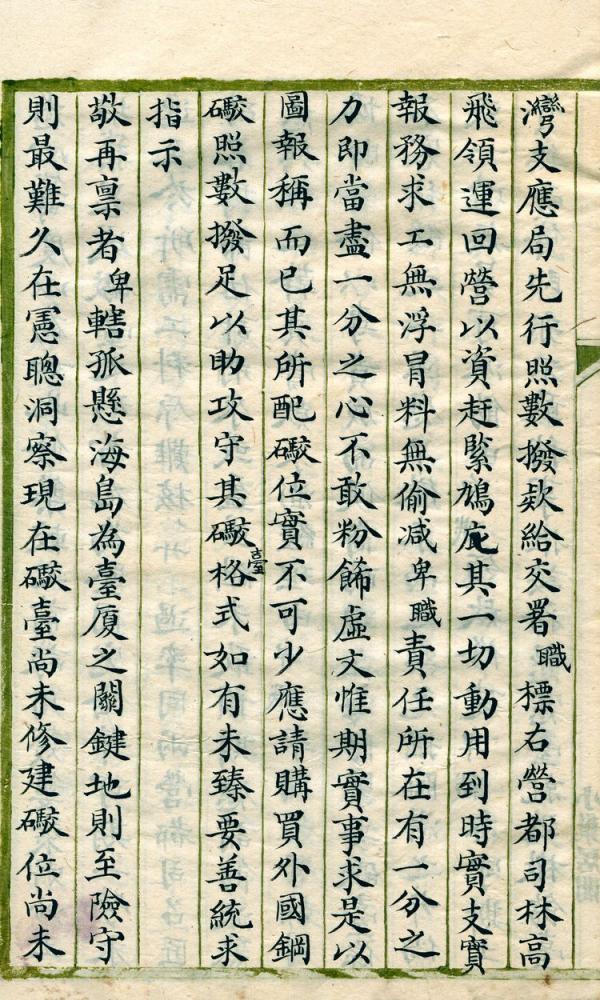 灣支應局先行照數撥欵給交署職標右營都司林高
飛領運回營以資赶緊鳩庀其一切動用到時實支實
報務求工無浮冒料無偷減卑職責任所在有一分之
力即當盡一分之心不敢粉餙虛文惟期實事求是以
圖報稱而已其所配礮位實不可少應請購買外國鋼
礮照數撥足以助攻守其礮臺格式如有未臻要善統求
指示
敬再禀者卑轄孤懸海島為臺厦之關鍵地則至險守
則最難久在憲聰洞察現在礮臺尚未修建礮位尚未